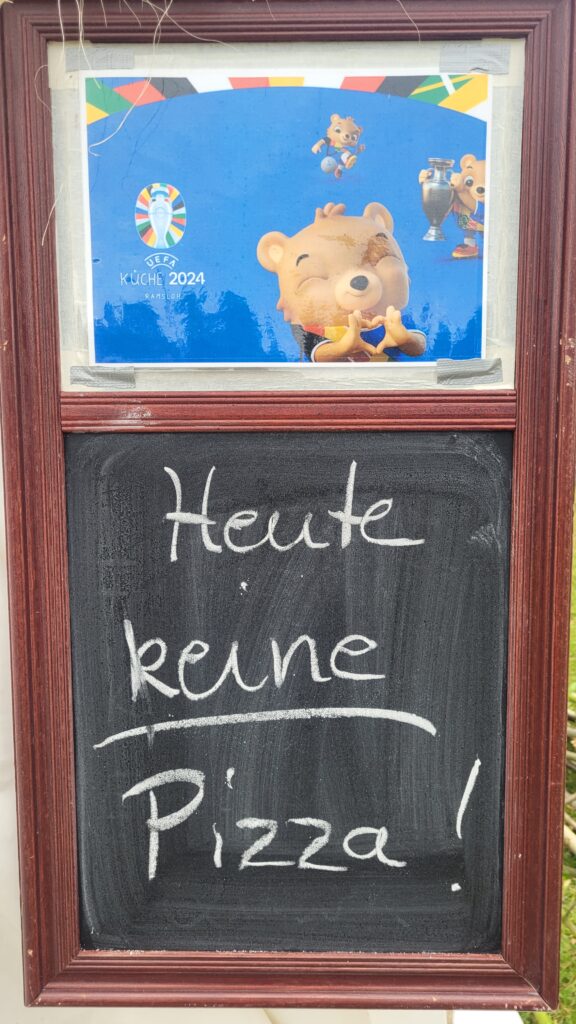 UEFA
KÜCHE 2024
RAMSLOH
Heute
keine
Pizza!